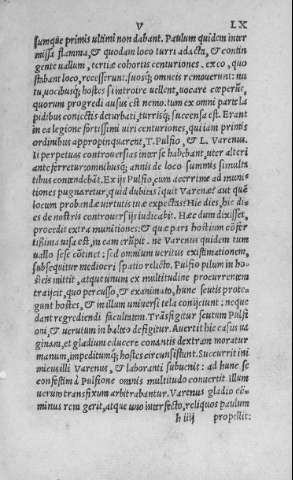 V LX
sumque primis ultimi non dabant. Paulum quidem inter
missa flamma, & quodam loco turri adacta, & contin
gente uallum, tertiæ cohortis centuriones, ex eo, quo
stabant loco, recesserunt: suosq; omneis remouerunt: nu
tu, uocibusq; hostes si introire uellent, uocare cœperunt:
quorum progredi ausus est nemo. tum ex omni parte la
pidibus coniectis deturbati, turrisq; succensa est. Erant
in ea legione fortissimi uiri centuriones, qui iam primis
ordinibus appropinquarent, T. Pulfio, & L. Varenus.
ii perpetuas controuersias inter se habebant, uter alteri
anteferretur: omnibusq; annis de loco summis simulta
tibus contendebāt. Ex ijs Pulfio, cum acerrime ad muni
tiones pugnaretur, quid dubitas inquit Varene? aut quē
locum probandæ uirtutis tuæ expectas? Hic dies, hic di
es de nostris controuersijs iudicabit. Hæc dum dixisset,
procedit extra munitiones: & quæ pars hostium cōfer
tissima uisa est, in eam erūpit. ne Varenus quidem tum
uallo sese cōtinet: sed omnium ueritus existimationem,
subsequitur mediocri spatio relicto. Pulfio pilum in ho
steis mittit, atque unum ex multitudine procurrentem
traijcit, quo percusso, & exanimato, hunc scutis prote
gunt hostes, & in illum uniuersi tela conijciunt: neque
dant regrediendi facultatem. Trāsfigitur scutum Pulfi
oni, & uerutum in balteo defigitur. Auertit hic casus ua
ginam, et gladium educere conantis dextram moratur
manum, impeditumq; hostes circunsistunt. Succurrit ini
micus illi Varenus, & laboranti subuenit: ad hunc se
confestim à Pulfione omnis multitudo conuertit illum
uerum transfixum arbitrabantur. Varenus gladio cō=
minus rem gerit, atque uno interfecto, reliquos paulum
h iiij propellit: